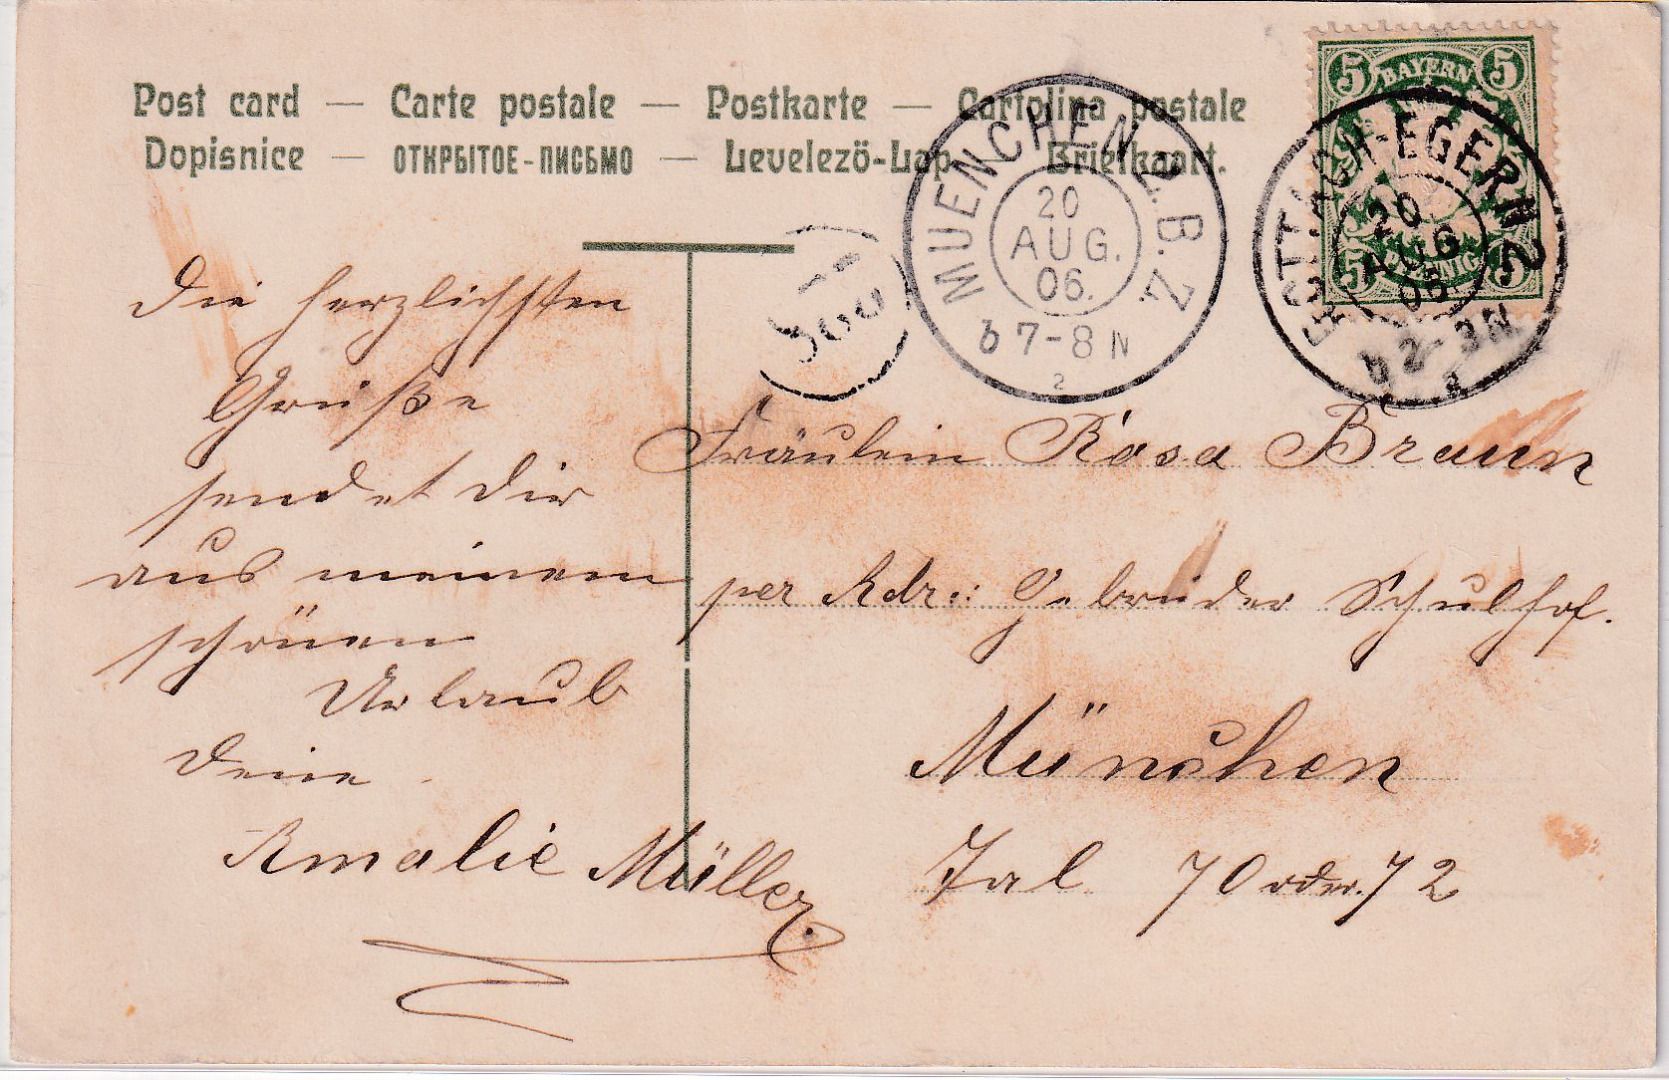 Post card — Carte postale — Postkarte — Cartolina postale
Dopisnice — ОТКРЫТОЕ-ПИСЬМО — Levelezö-Lap — Briefkaart.
BAYERN
5 5
5 5
PFENNIG
MUENCHEN 2.B.Z.
20
AUG.
06.
b 7-8 N
2
ROTTACH-EGERN 2
20
AUG
06.
b 2-3 N
a
Die herzlichsten
Grüße
sendet Dir
aus meinem
schönen
Urlaub
Deine
Amalie Müller.
Fräulein Rosa Braun
per Adr.: Gebrüder Schulhof.
München
Tal 70 oder 72